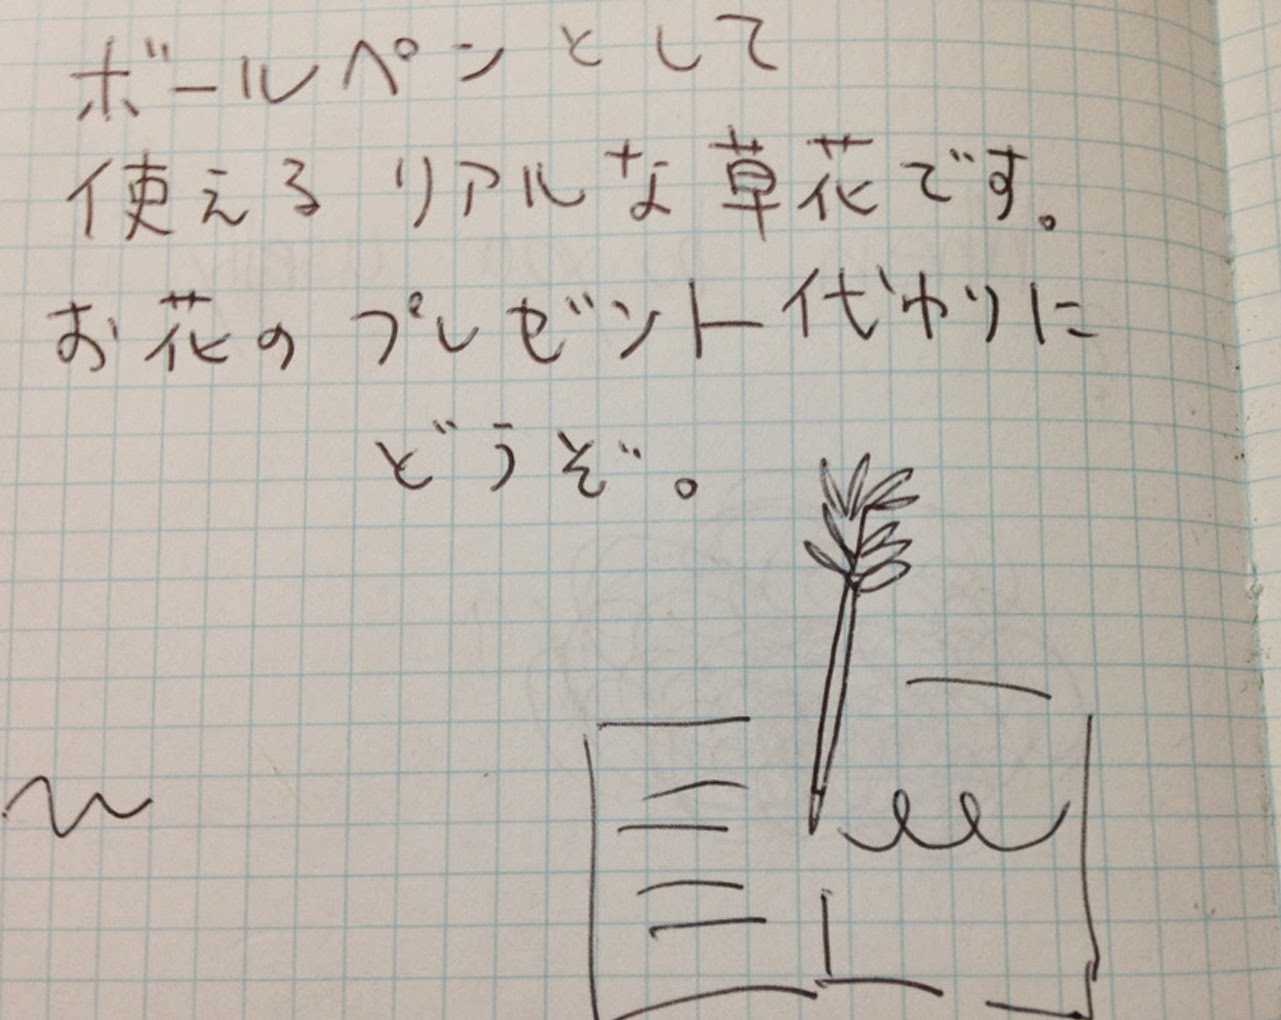 ボールペンとして
使えるリアルな草花です。
お花のプレゼント代わりに
どうぞ。